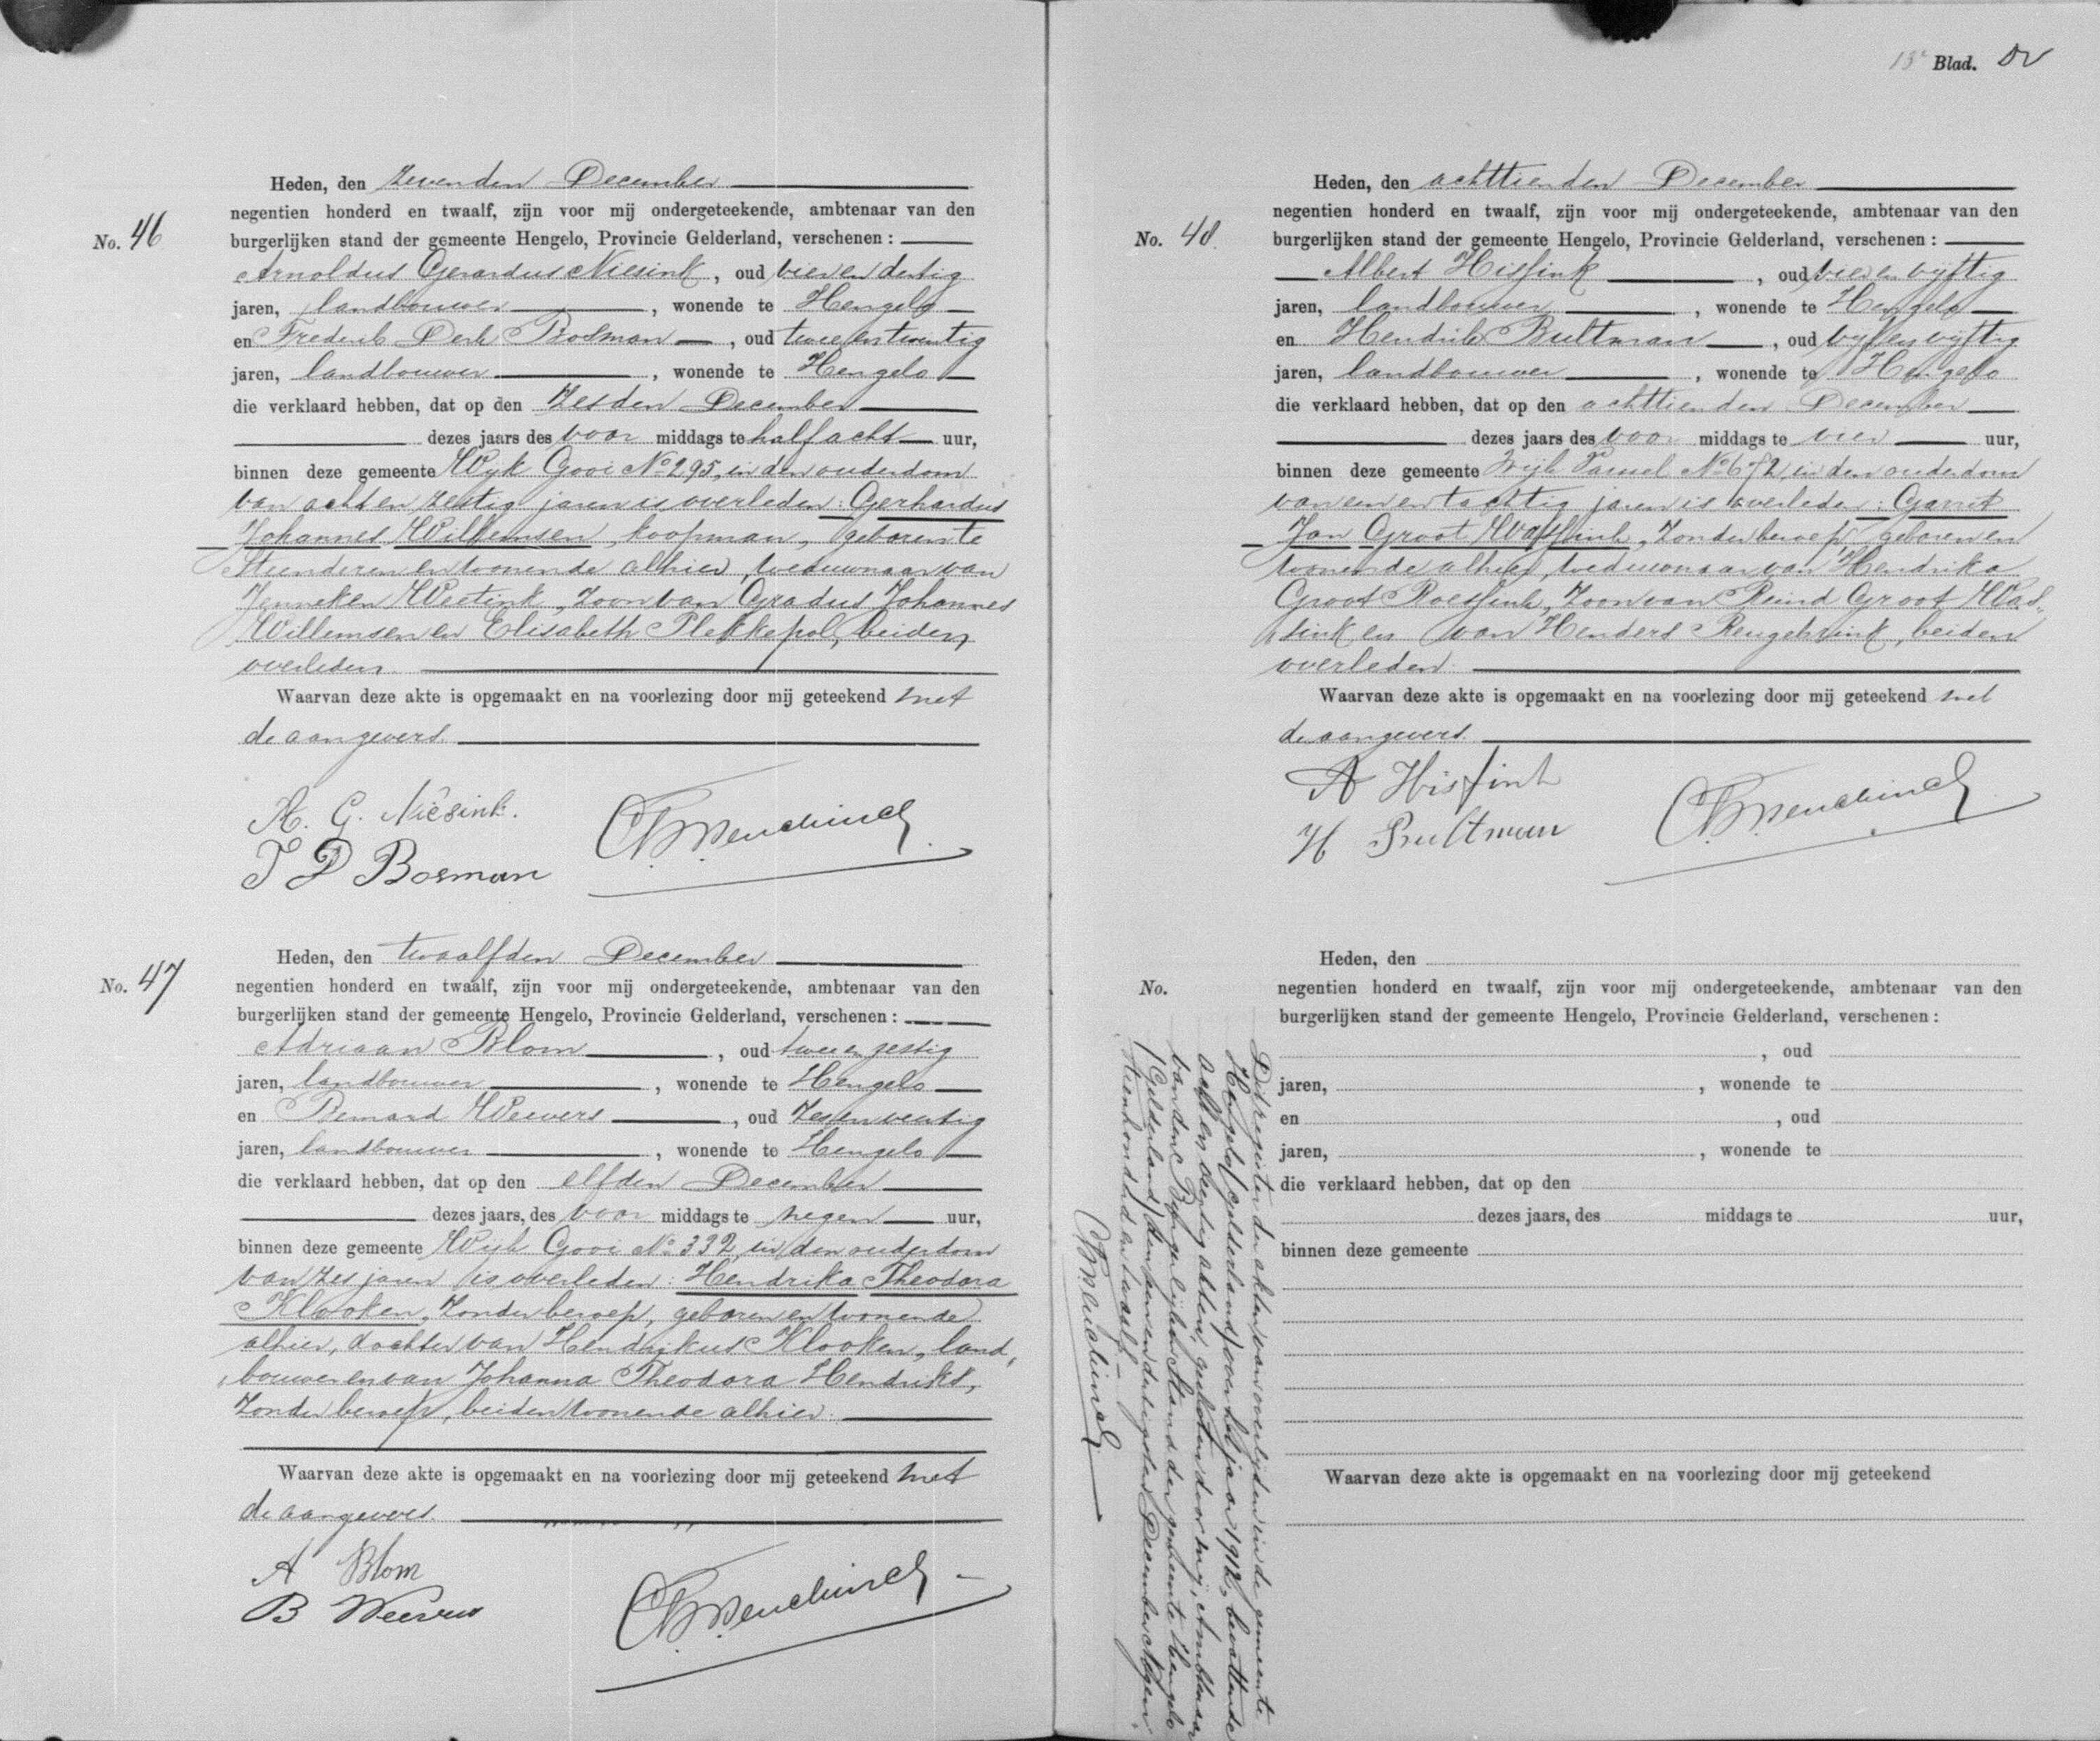 Heden, den zevenden December
negentien honderd en twaalf, zijn voor mij ondergeteekende, ambtenaar van den
No. 46
burgerlijken stand der gemeente Hengelo, Provincie Gelderland, verschenen :
Arnoldus Gerardus Niesink, oud vier en dertig
jaren, landbouwer, wonende te Hengelo
en Frederik Derk Bosman, oud twee en twintig
jaren, landbouwer, wonende te Hengelo
die verklaard hebben, dat op den zesden December
dezes jaars des voor middags te half acht uur,
binnen deze gemeente Wijk Gooi No 295, in den ouderdom
van acht en zestig jaren is overleden: Gerhardus
Johannes Willemsen, koopman, geboren te
Steenderen en wonende alhier, weduwnaar van
Jenneken Weetink, zoon van Gradus Johannes
Willemsen en Elisabeth Plekkepol, beiden
overleden
Waarvan deze akte is opgemaakt en na voorlezing door mij geteekend met
de aangevers.
A. G. Niesink.
F D Bosman
Heden, den twaalfden December
No. 47
negentien honderd en twaalf, zijn voor mij ondergeteekende, ambtenaar van den
burgerlijken stand der gemeente Hengelo, Provincie Gelderland, verschenen :
Adriaan Blom, oud twee en zestig
jaren, landbouwer, wonende te Hengelo
en Bernard Weevers, oud zes en veertig
jaren, landbouwer, wonende te Hengelo
die verklaard hebben, dat op den elfden December
dezes jaars, des voor middags te negen uur,
binnen deze gemeente Wijk Gooi No 332, in den ouderdom
van zes jaren is overleden: Hendrika Theodora
Klooken, zonder beroep, geboren en wonende
alhier, dochter van Hendrikus Klooken, land,
bouwer en van Johanna Theodora Hendriks,
zonder beroep, beiden wonende alhier.
Waarvan deze akte is opgemaakt en na voorlezing door mij geteekend met
de aangevers.
A Blom
B Weevers
Blad.
Heden, den achttienden December
negentien honderd en twaalf, zijn voor mij ondergeteekende, ambtenaar van den
No. 48.
burgerlijken stand der gemeente Hengelo, Provincie Gelderland, verschenen :
Albert Hissink, oud vier en vijftig
jaren, landbouwer, wonende te Hengelo
en Hendrik Bultman, oud vijf en vijftig
jaren, landbouwer, wonende te Hengelo
die verklaard hebben, dat op den achttienden December
dezes jaars des voor middags te vier uur,
binnen deze gemeente Wijk Varssel No 672, in den ouderdom
van een en tachtig jaren is overleden: Garrit
Jan Groot Wassink, zonder beroep, geboren en
wonende alhier, weduwnaar van Hendrika
Groot Roessink, zoon van Reind Groot Was„
„sink en van Henders Rengelsink, beiden
overleden.
Waarvan deze akte is opgemaakt en na voorlezing door mij geteekend met
de aangevers.
A Hissink
H Bultman
Heden, den
No.
negentien honderd en twaalf, zijn voor mij ondergeteekende, ambtenaar van den
burgerlijken stand der gemeente Hengelo, Provincie Gelderland, verschenen :
, oud
jaren, , wonende te
en , oud
jaren, , wonende te
die verklaard hebben, dat op den
dezes jaars, des middags te uur,
binnen deze gemeente
Waarvan deze akte is opgemaakt en na voorlezing door mij geteekend
Dit register der akten van overlijden in de gemeente
Hengelo (Gelderland) over het jaar 1912, bevattende
acht en veertig akten, gesloten door mij, Ambtenaar
van den Burgerlijken Stand der gemeente Hengelo
(Gelderland) den een en dertigsten December Negen„
tienhonderd en twaalf.